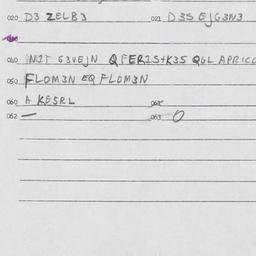 020 D3 ZELB3 021 D3S EJG3N3
040 INIT G3VEJN QFER2S+K3S QGL APRICO
050 FLOM3N EQ FLOM3N
060 A KESRL 061
062 — 063 O